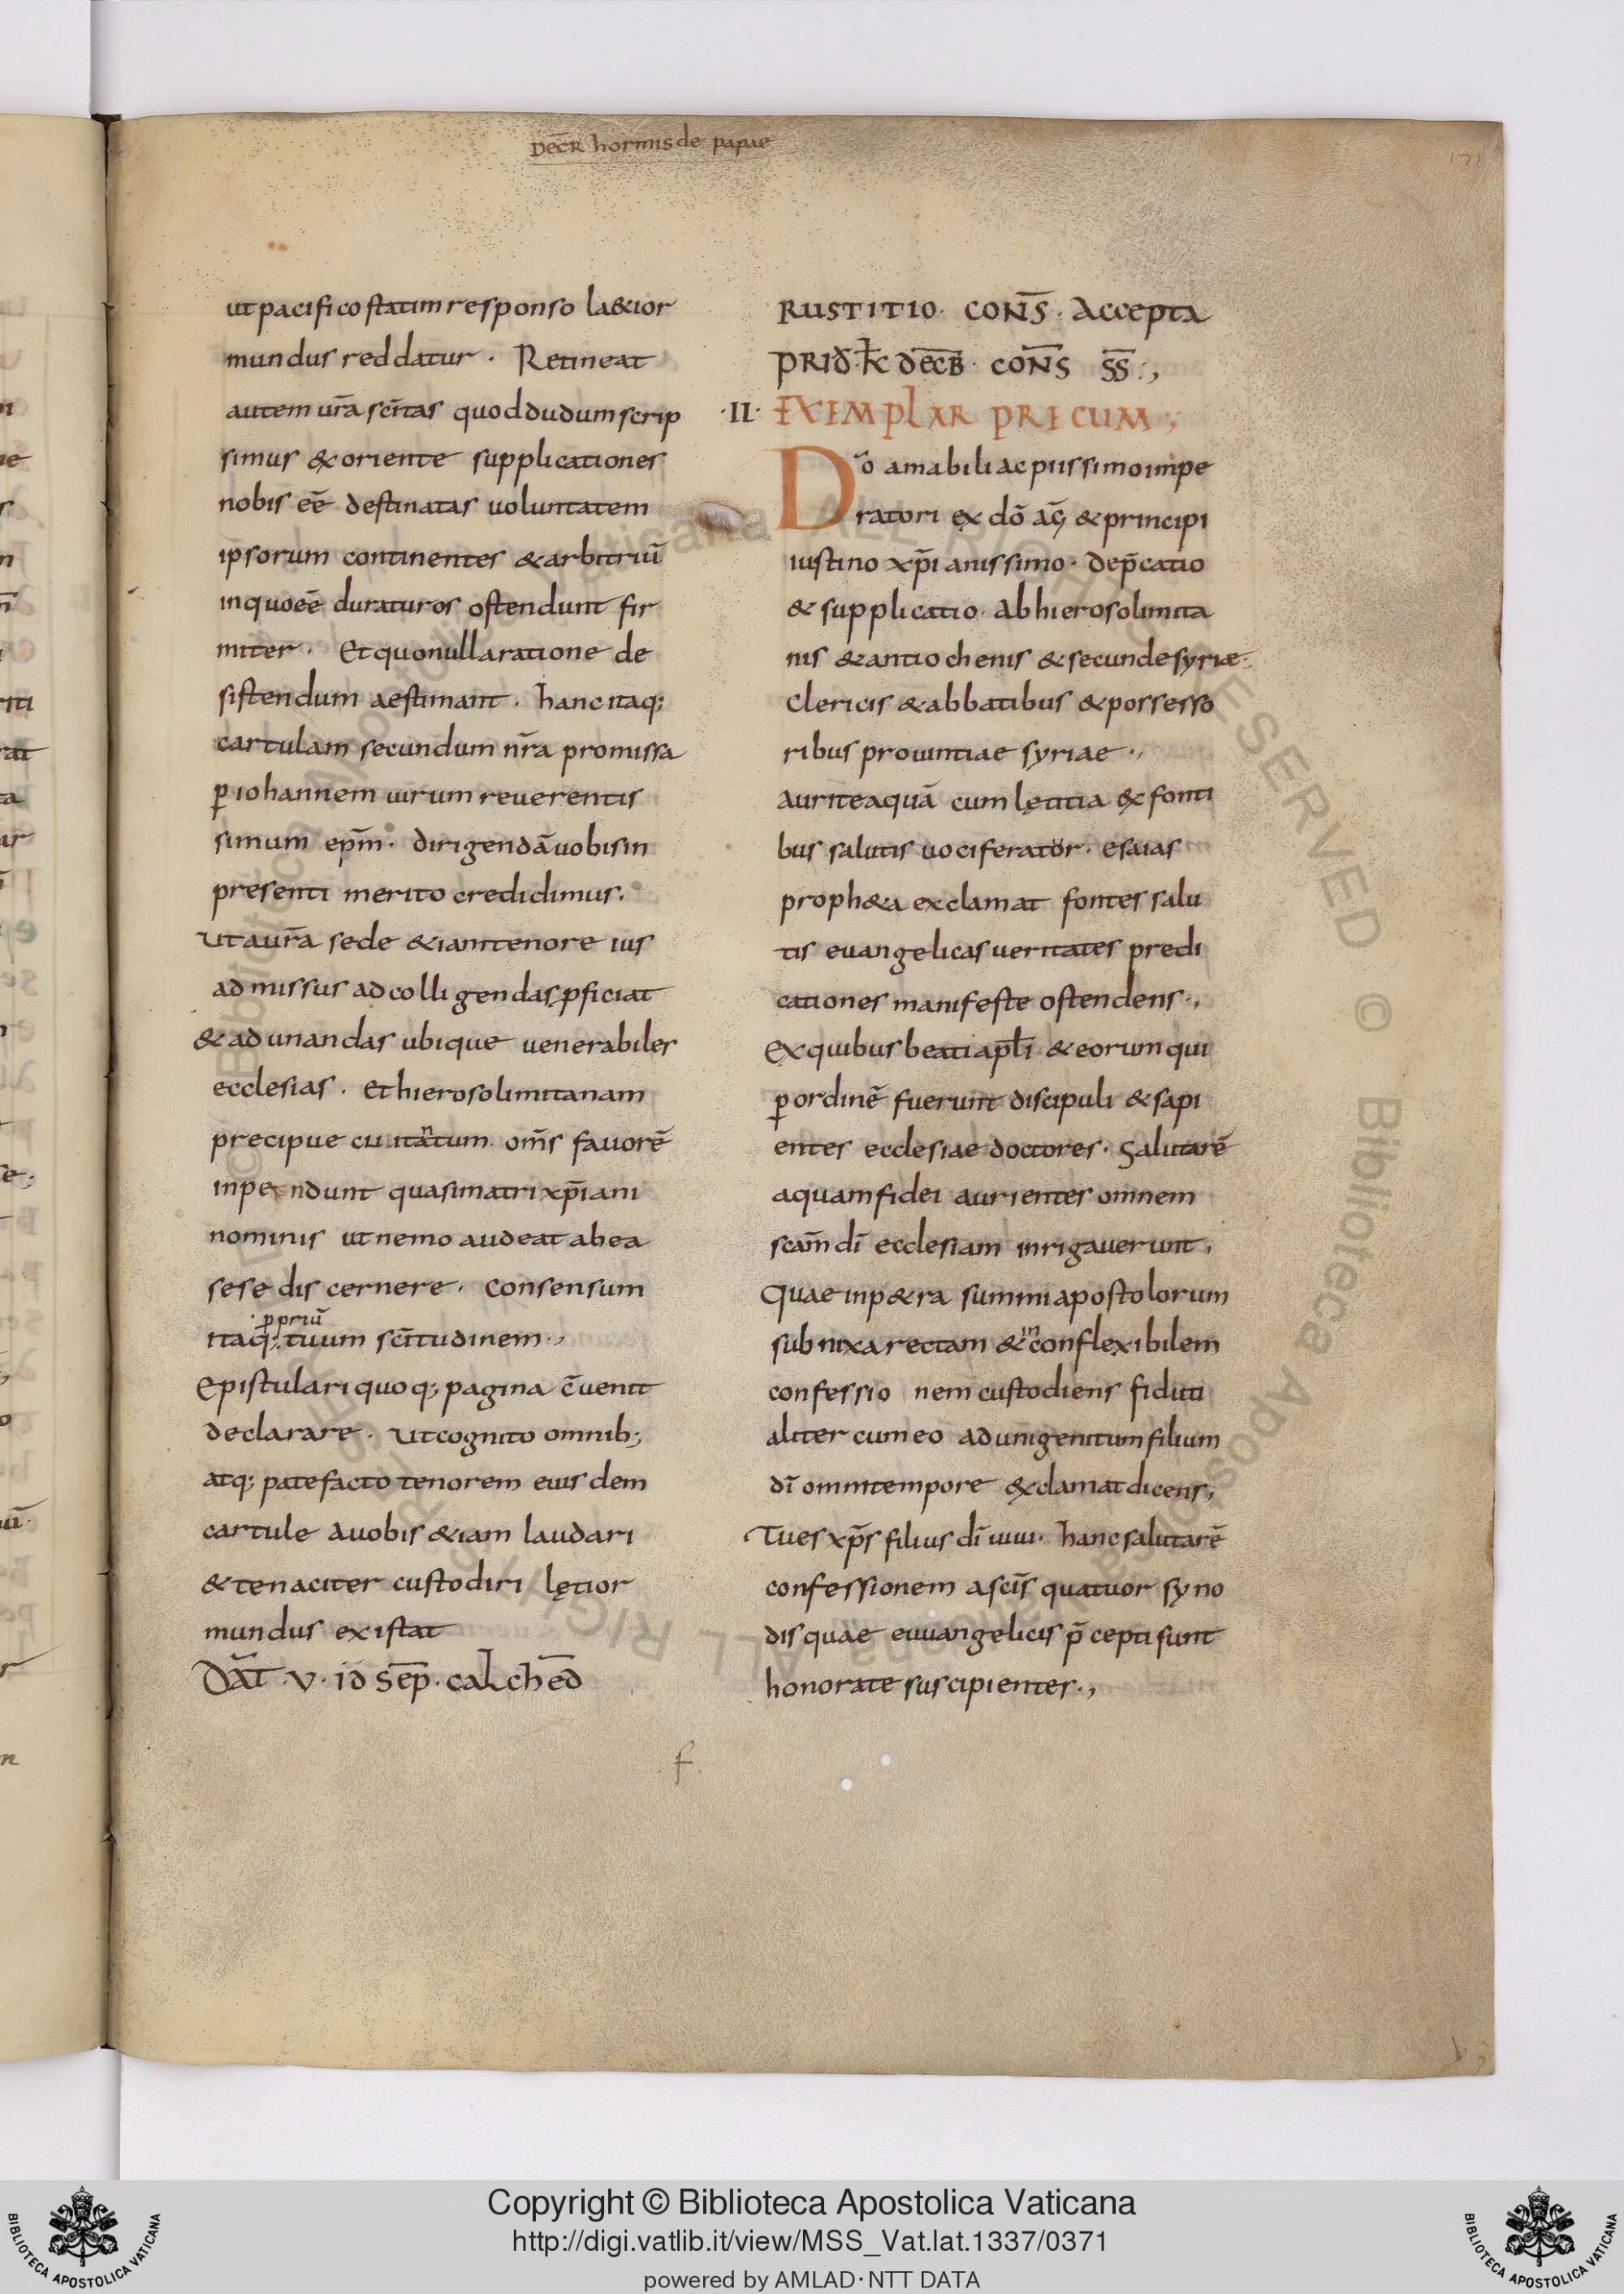 DEC̄R hormisde papae
171
ut pacifico statim responso la&ior
mundus reddatur · Retineat
autem ur̄a sc̄itas quod dudum scrip
simus &oriente supplicationes
nobis eē destinatas uoluntatem
ipsorum continentes &arbitriū
inquoeē duraturos ostendunt fir
miter · Et quonulla ratione de
sistendum aestimant · hanc itaq;
cartulam secundum nr̄a promissa
ꝑ iohannem uirum reuerentis
simum ep̄m · dirigendā uobis in
presenti merito credidimus.
Ut aur̄a sede &iam tenore ius
admissus ad colligendas ꝓficiat
&adunandas ubique uenerabiles
ecclesias · Et hierosolimitanam
precipue cuitãtum om̄s fauorē
inpendunt quasi matri xp̄iani
nominis ut nemo audeat ab ea
sese discernere · Consensum
ꝓpriū
itaq; tuum sc̄itudinem ·,
Epistulari quoq; pagina c̄uenit
declarare · Ut cognito omnib;
atq; patefacto tenorem eius dem
cartule A uobis &iam laudari
&tenaciter custodiri lętior
mundus existat
Dāt · V · id sēp · calched̄
RUSTITIO · CON̄S · Accepta
PRID · k̄ DEC̄B · CON̄S S̄S̄ ·,
·II· EXEMPLAR PRECUM ·,
Dn̄o amabili ac piissimo impe
ratori ex dō āḡ &principi
iustino xp̄ianissimo · dep̄catio
&supplicatio · Ab hierosolimita
nis &antiochenis &secunde syriae ·
Clericis &abbatibus &possesso
ribus prouintiae syriae ·,
aurite aquā cum lętitia &x fonti
bus salutis uociferator · esaias
proph&a exclamat fontes salu
tis euangelicas ueritates predi
cationes manifeste ostendens ·,
Ex quibus beati apl̄i &eorum qui
ꝑ ordinē fuerunt discipuli &sapi
entes ecclesiae doctores · Salutarē
aquam fidei aurientes omnem
scām dī ecclesiam inrigauerunt ·
Quae inp&ra summi apostolorum
in
subnixa rectam & conflexibilem
confessio nem custodiens fiduti
aliter cum eo ad unigenitum filium
dī omni tempore &xclamat dicens,
Tu es xp̄s filius dī uiui · hanc salutarē
confessionem a sc̄is quatuor syno
dis quae euuangelicis p̄cepti sunt
honorate suscipientes ·,
f
Copyright © Biblioteca Apostolica Vaticana
http://digi.vatlib.it/view/MSS_Vat.lat.1337/0371
powered by AMLAD·NTT DATA
BIBLIOTECA APOSTOLICA VATICANA
BIBLIOTECA APOSTOLICA VATICANA